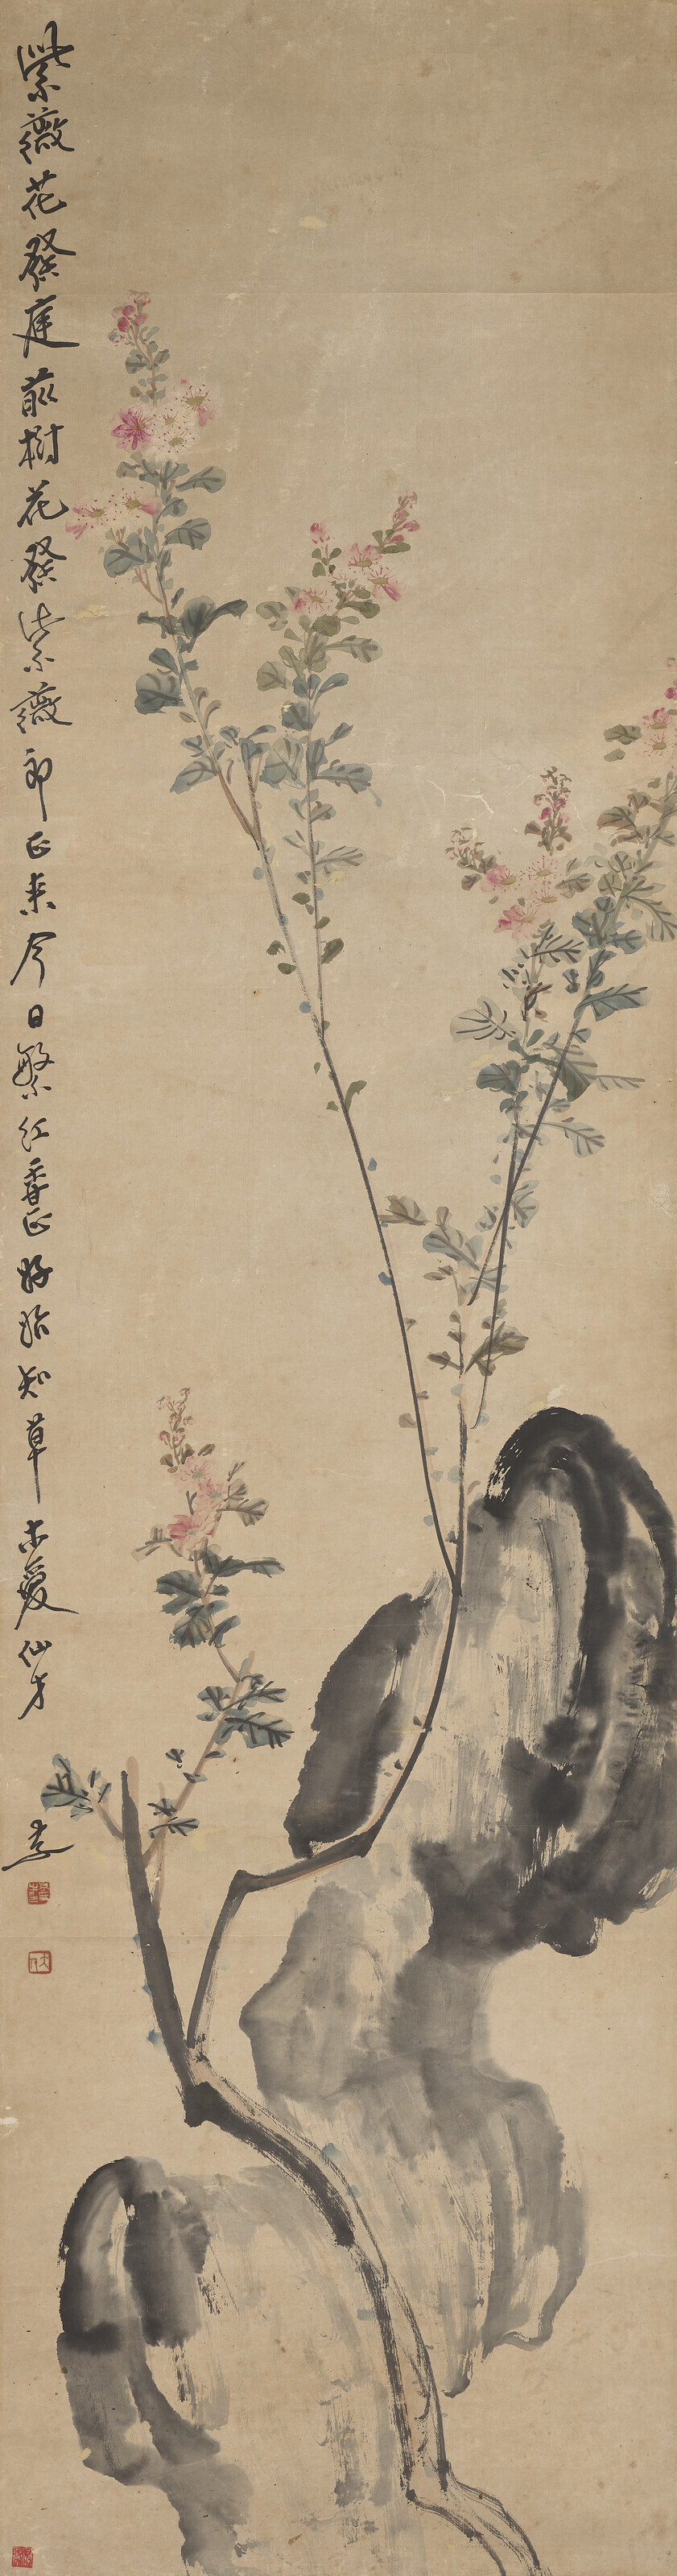 紫薇花發庭前樹花發紫薇郎正來今日繁紅香正好始知草木愛仙才